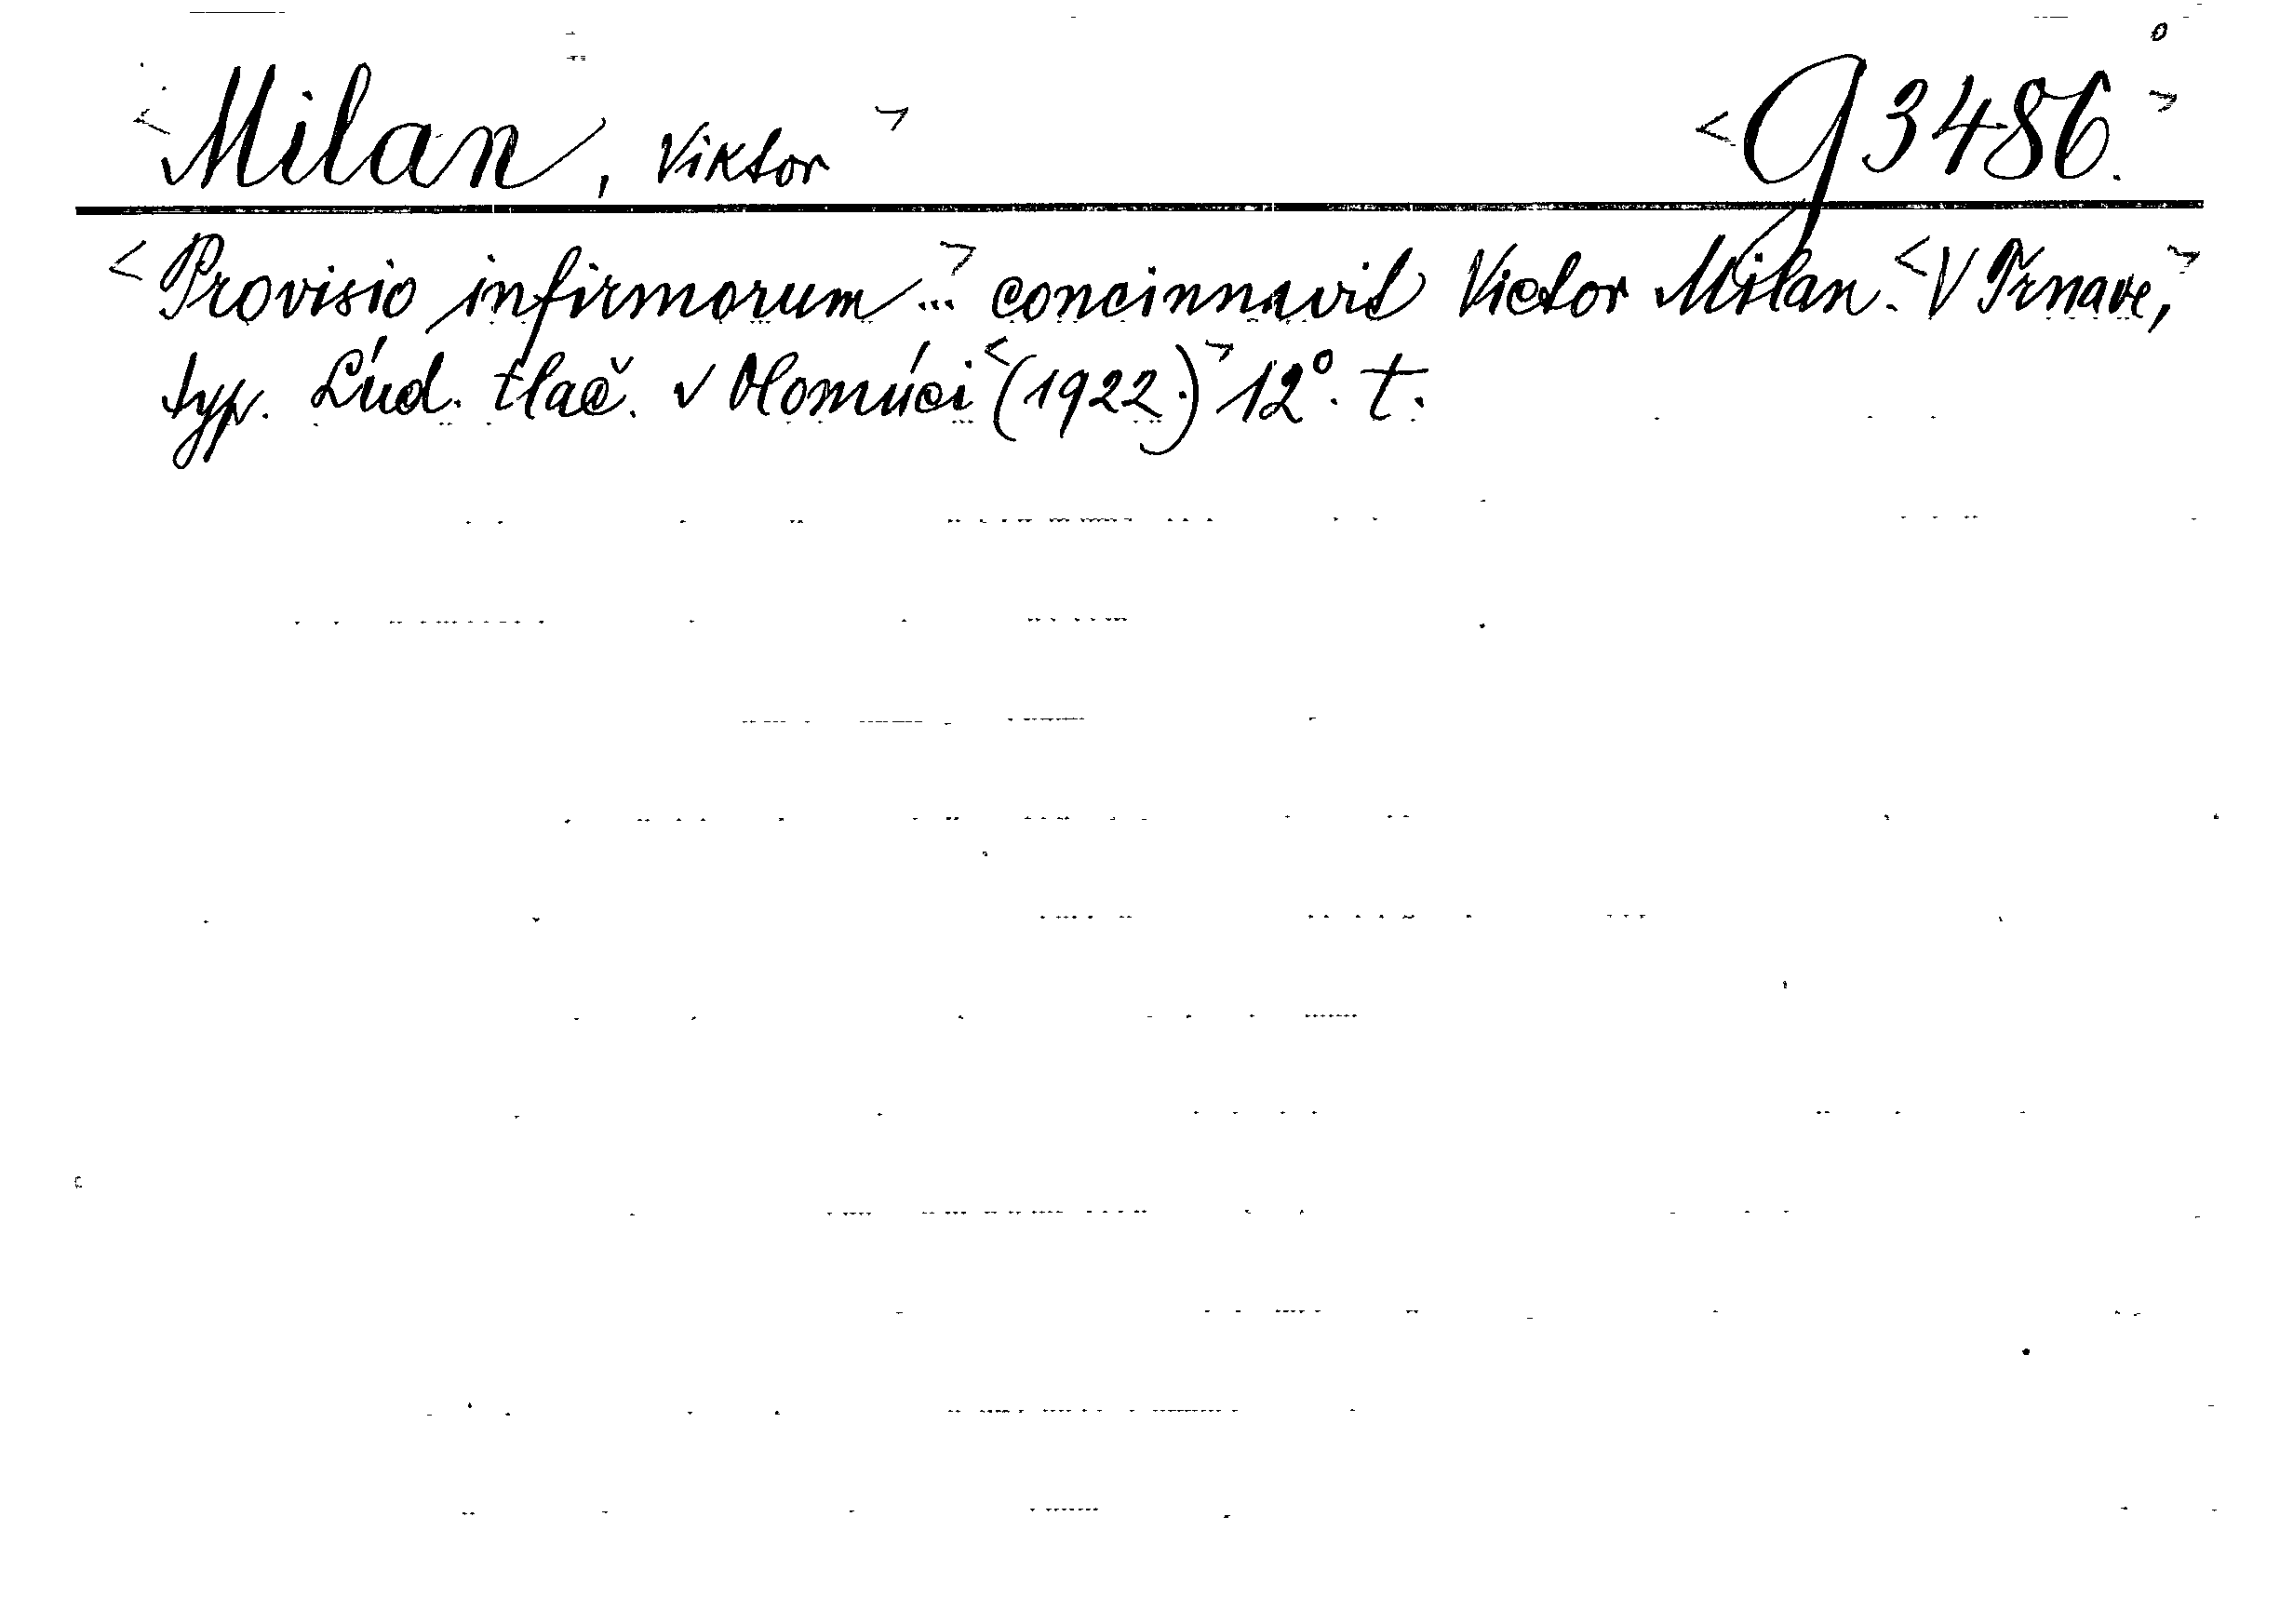 <Milan, Viktor> <G 3486.>
<Provisio infirmorum...> concinnavit Victor Milan. <V Trnave,>
typ. Lúd. tlač. v Olomúci <(1922.)> 12°. t.